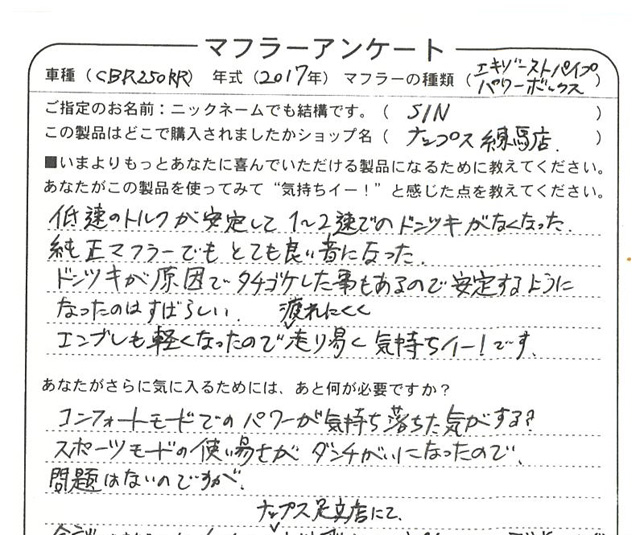 マフラーアンケート
車種（CBR250RR） 年式（2017年） マフラーの種類（エキゾーストパイプ パワーボックス）
ご指定のお名前：ニックネームでも結構です。（ SIN ）
この製品はどこで購入されましたかショップ名（ ナップス 練馬店. ）
■いまよりもっとあなたに喜んでいただける製品になるために教えてください。
あなたがこの製品を使ってみて“気持ちイー！”と感じた点を教えてください。
低速のトルクが安定して 1〜2速でのドンツキがなくなった.
純正マフラーでも とても良い音になった.
ドンツキが原因でタチゴケした事もあるので安定するように
なったのはすばらしい. 疲れにくく
エンブレも軽くなったので走り易く 気持ちイー！です.
あなたがさらに気に入るためには、あと何が必要ですか？
コンフォートモードでの パワーが気持ち落ちた気がする？
スポーツモードの使い易さが ダンチがいになったので.
問題はないのですが.
ナップス足立店にて.